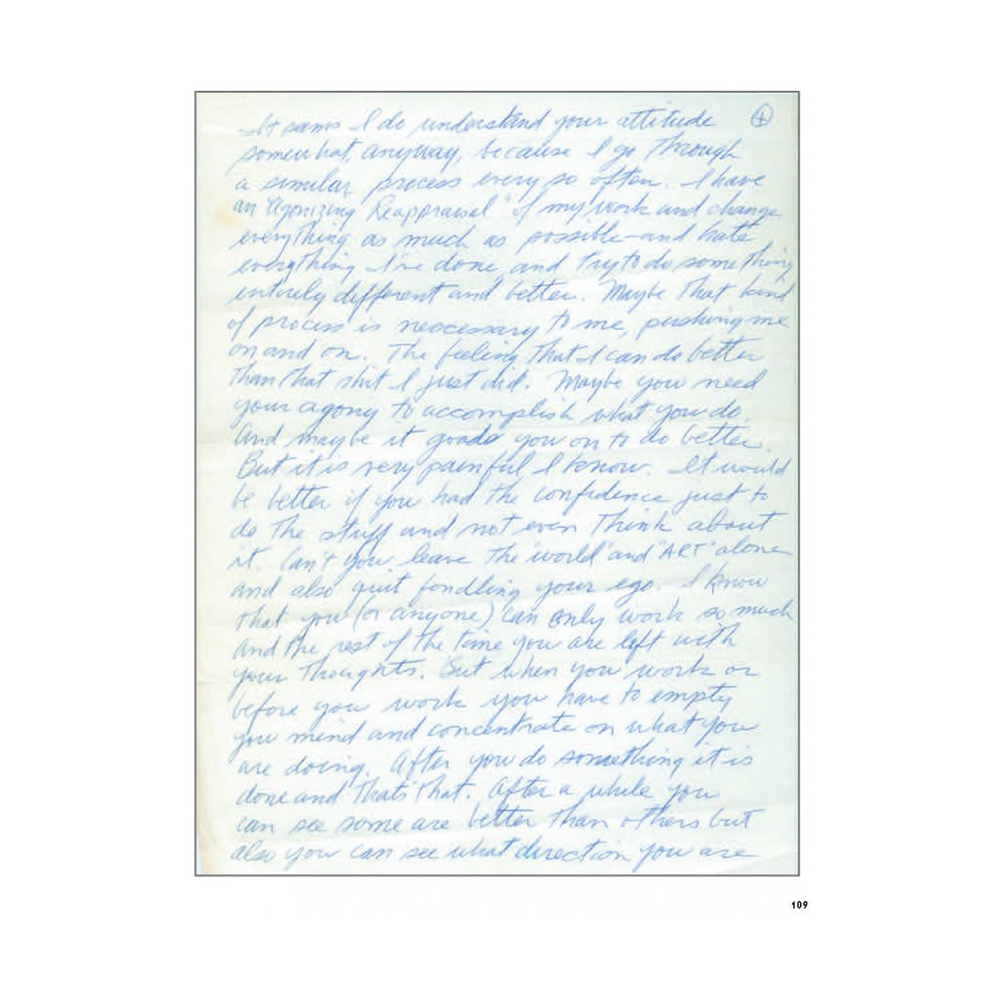 It seems I do understand your attitude
4
somewhat, anyway, because I go through
a similar process every so often. I have
an "Agonizing Reappraisal" of my work and change
everything as much as possible—and hate
everything I've done, and try to do something
entirely different and better. Maybe that kind
of process is neccessary to me, pushing me
on and on. The feeling that I can do better
than that shit I just did. Maybe you need
your agony to accomplish what you do.
And maybe it goads you on to do better.
But it is very painful I know. It would
be better if you had the confidence just to
do the stuff and not even think about
it. Can't you leave the "world" and "ART" alone
and also quit fondling your ego. I know
that you (or anyone) can only work so much
and the rest of the time you are left with
your thoughts. But when you work or
before you work you have to empty
you mind and concentrate on what you
are doing. After you do something it is
done and that's that. After a while you
can see some are better than others but
also you can see what direction you are
109